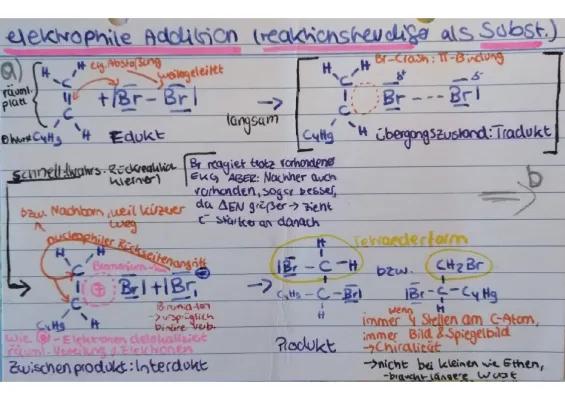 elektrophile Addition (reaktionsfreudiger als Subst.)
a)
räuml.
platt
H H
C
C
C4H9 H
ev. Abstoßung
weitergeleitet
+ |Br - Br|
Edukt
langsam
Br-Crash: π-Bindung
H H
C
C
C4H9 H
δ+ δ-
Br --- Br|
Übergangszustand: Tradukt
schnell
Rückreaktion
kleiner)
Br reagiert trotz vorhandener
EKG, ABER: Nachher auch
vorhanden, sogar besser,
da ΔEN größer → zieht
e- stärker an danach
b
bzw. Nachbarn, weil kürzerer
Weg
nucleophiler Rückseitenangriff
H H
C
C
C4H9 H
Bromonium-
+
Br| + |Br|
-
Bromid-Ion
→ ursprünglich
wie - Elektronen delokalisiert
räuml. Verteilung v. Elektronen
Zwischenprodukt: Interdukt
Tetraederform
H
|Br - C - H
C4H9 - C - Br|
H
Produkt
bzw.
CH2Br
|Br - C - C4H9
H
wenn
immer 4 Stellen am C-Atom,
immer Bild & Spiegelbild
→ Chiralität
→ nicht bei kleinen wie Ethen,
braucht längere Wurst